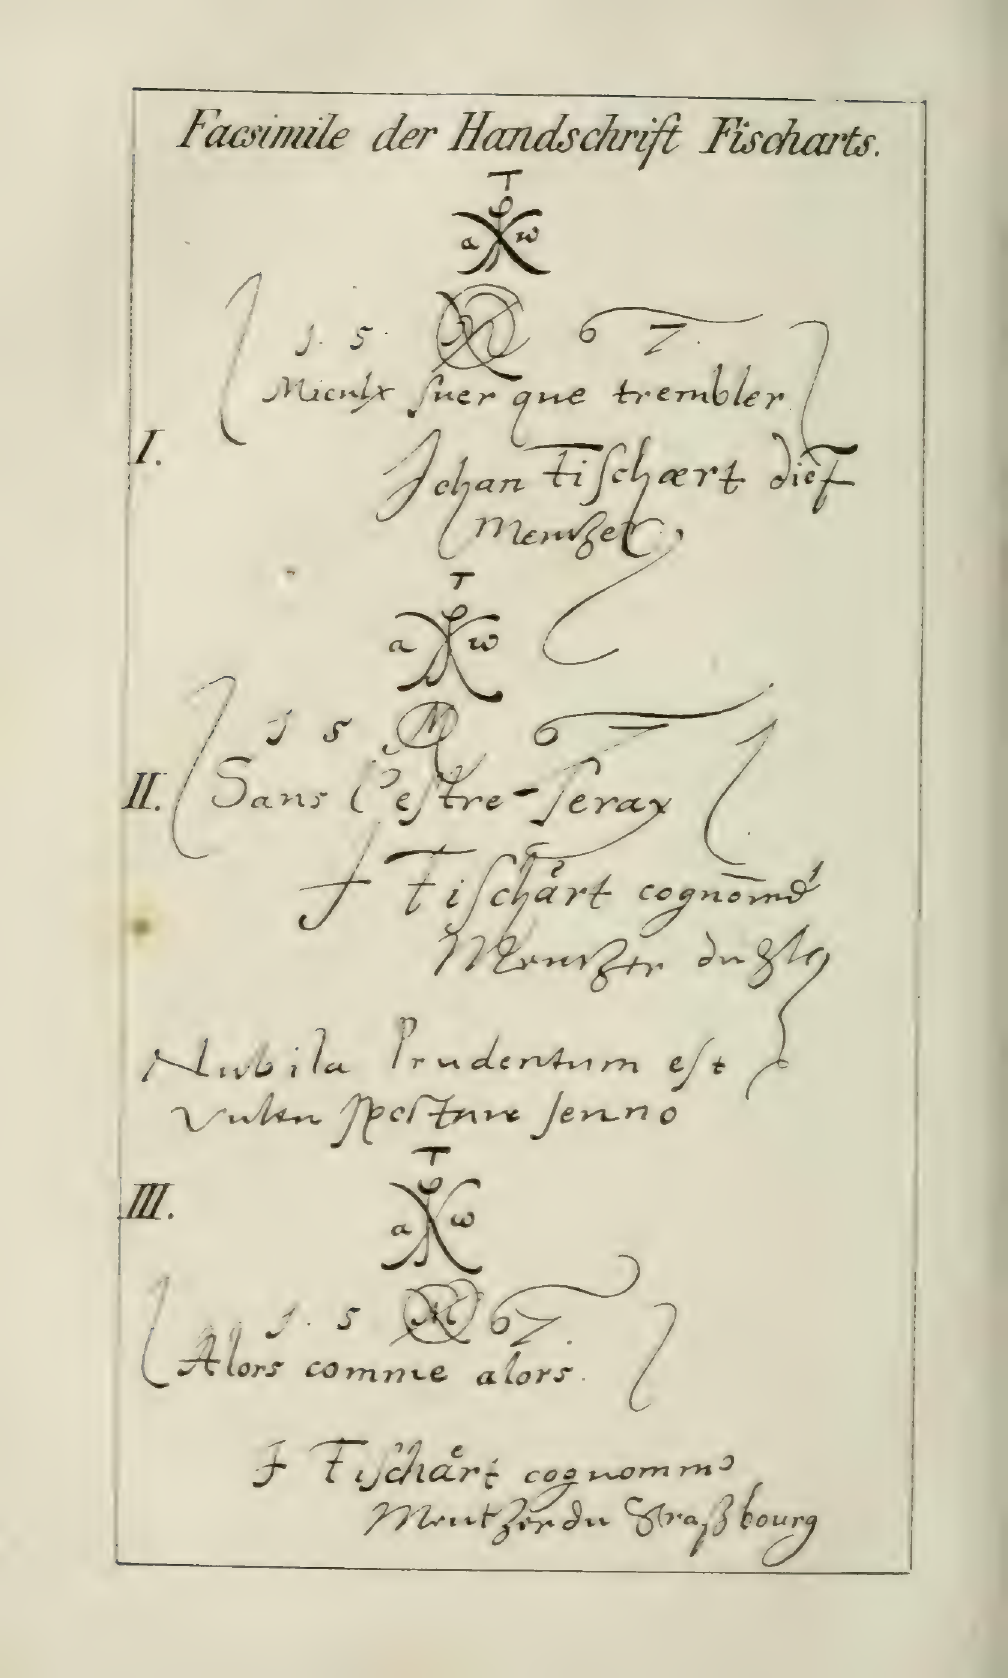 Facsimile der Handschrift Fischarts.
T
a w
1. 5. M 6 7.
Mieulx suer que trembler
I.
Johan Fischaert dict
Mentzer
T
a w
1 5 M 6 7
II. Sans l'estre-seray
J Fischaͤrt cognom̄é
Mentzer du
Nubila Prudentum est
vultu sermo
T
III.
a ω
1. 5 M 6 7.
Alors comme alors.
J Fischaͤrt cognommé
Mentzer du Straßbourg